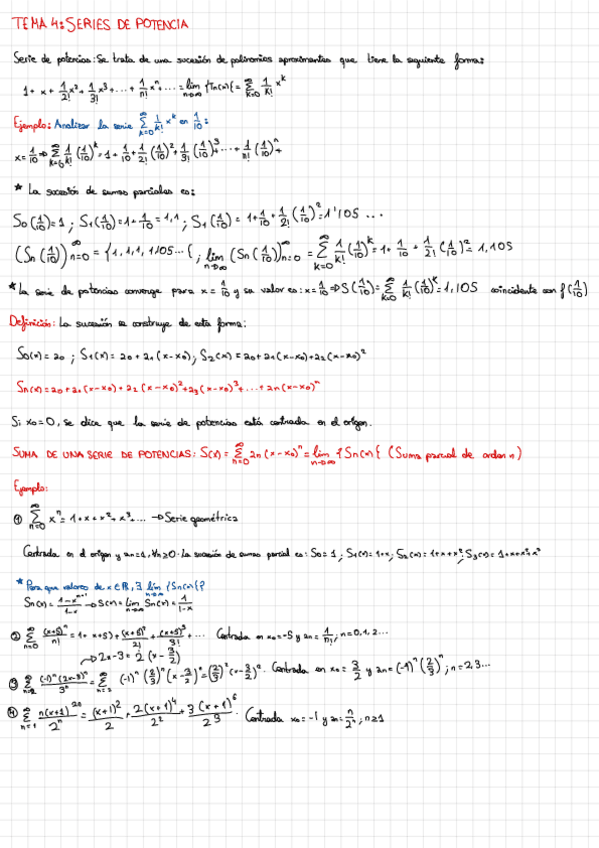 TEMA 4: SERIES DE POTENCIA
Serie de potencias: Se trata de una sucesión de polinomios aproximantes que tiene la siguiente forma:
1 + x + 1/2! x² + 1/3! x³ + ... + 1/n! xⁿ + ... = lim n→∞ {Tn(x)} = ∑ k=0 ∞ 1/k! x^k
Ejemplo: Analizar la serie ∑ k=0 ∞ 1/k! x^k en 1/10:
x = 1/10 ⇒ ∑ k=0 ∞ 1/k! (1/10)^k = 1 + 1/10 + 1/2! (1/10)² + 1/3! (1/10)³ + ... + 1/n! (1/10)ⁿ +
* La sucesión de sumas parciales es:
S0(1/10) = 1 ; S1(1/10) = 1 + 1/10 = 1,1 ; S1(1/10) = 1 + 1/10 + 1/2! (1/10)² = 1'105 ...
(Sn(1/10)) n=0 ∞ = {1, 1,1, 1,105...{ ; lim n→∞ (Sn(1/10)) n=0 ∞ = ∑ k=0 ∞ 1/k! (1/10)^k = 1 + 1/10 + 1/2! (1/10)² = 1,105
* La serie de potencias converge para x = 1/10 y su valor es: x = 1/10 ⇒ S(1/10) = ∑ k=0 ∞ 1/k! (1/10)^k = 1,105 coincidente con f(1/10)
Definición: La sucesión se construye de esta forma:
S0(x) = a0 ; S1(x) = a0 + a1(x-x0) ; S2(x) = a0 + a1(x-x0) + a2(x-x0)²
Sn(x) = a0 + a1(x-x0) + a2(x-x0)² + a3(x-x0)³ + ... + an(x-x0)ⁿ
Si x0 = 0, se dice que la serie de potencias está centrada en el origen.
SUMA DE UNA SERIE DE POTENCIAS: S(x) = ∑ n=0 ∞ an(x-x0)ⁿ = lim n→∞ {Sn(x){ (Suma parcial de orden n)
Ejemplo:
① ∑ n=0 ∞ xⁿ = 1 + x + x² + x³ + ... → Serie geométrica
Centrada en el origen y an = 1, ∀n≥0. La sucesión de sumas parcial es: S0 = 1 ; S1(x) = 1+x ; S2(x) = 1+x+x² ; S3(x) = 1+x+x²+x³
* Para que valores de x∈ℝ, ∃ lim n→∞ {Sn(x){?
Sn(x) = 1-xⁿ⁺¹/1-x → S(x) = lim n→∞ Sn(x) = 1/1-x
② ∑ n=0 ∞ (x+5)ⁿ/n! = 1 + x+5) + (x+5)²/2! + (x+5)³/3! + ... Centrada en x0 = -5 y an = 1/n! ; n = 0,1,2...
→ 2x-3 = 2(x - 3/2)
③ ∑ n=2 ∞ (-1)ⁿ(2x-3)ⁿ/3ⁿ = ∑ n=2 ∞ (-1)ⁿ (2/3)ⁿ (x-3/2)ⁿ = (2/3)² (x-3/2)². Centrada en x0 = 3/2 y an = (-1)ⁿ (2/3)ⁿ ; n = 2,3...
④ ∑ n=1 ∞ n(x+1)²ⁿ/2ⁿ = (x+1)²/2 + 2(x+1)⁴/2² + 3(x+1)⁶/2³. Centrada x0 = -1 y an = n/2ⁿ ; n≥1